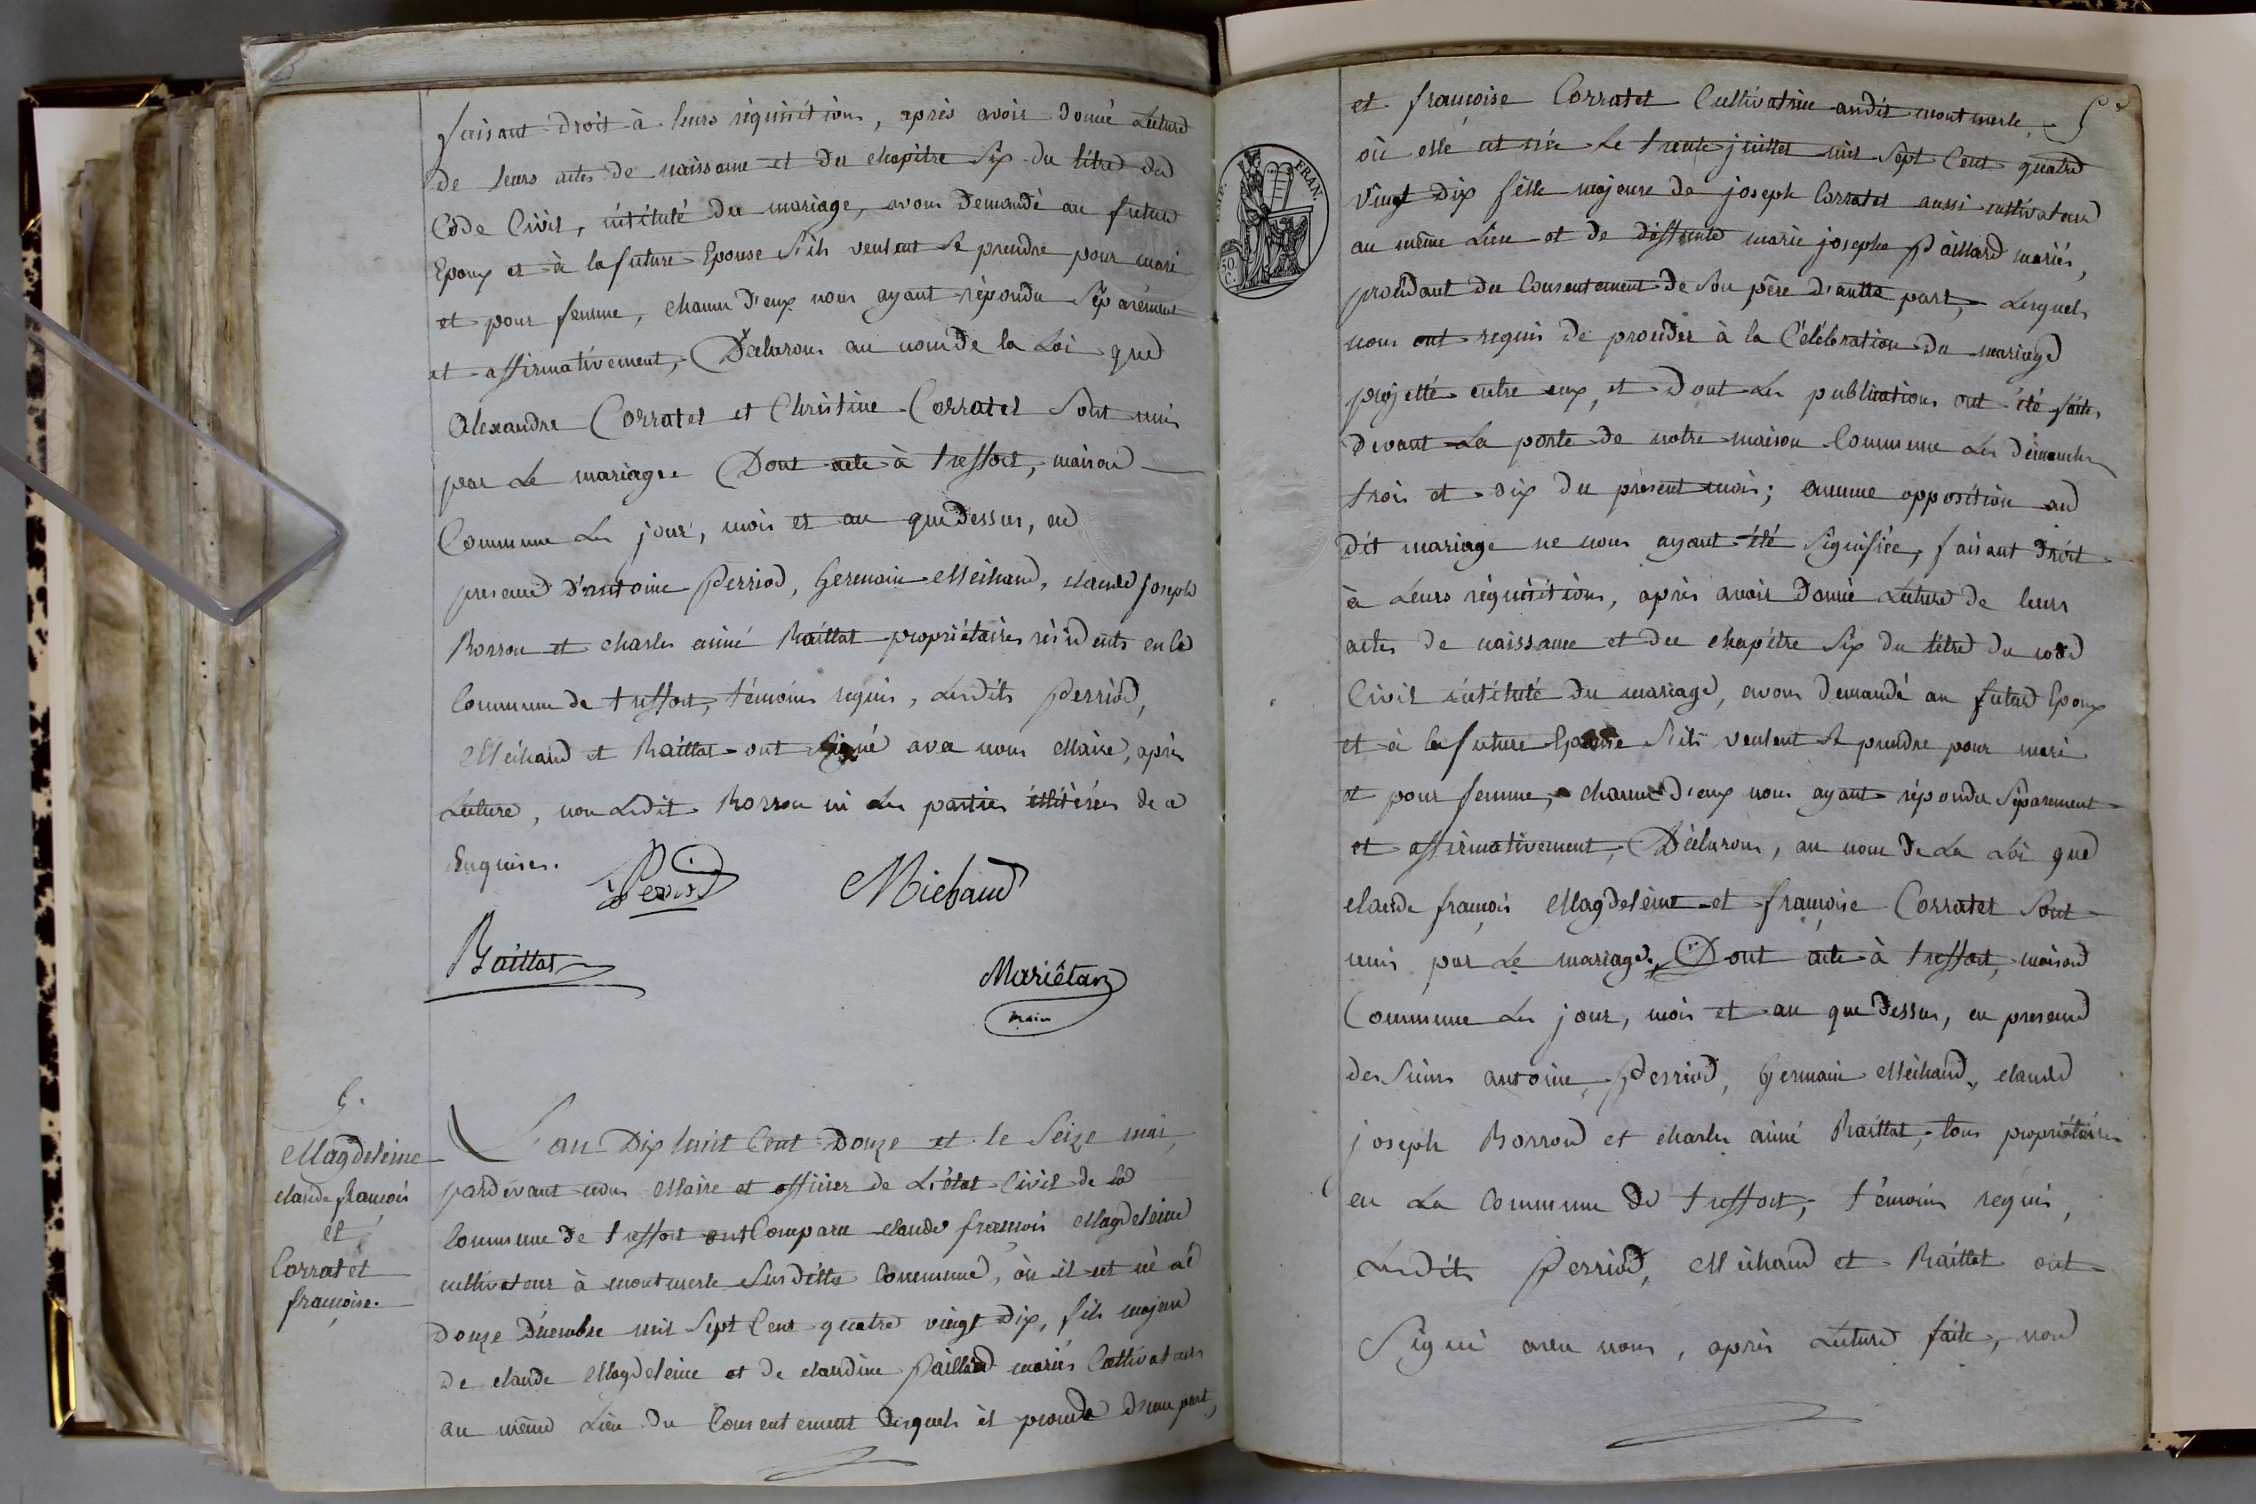 faisant droit à leurs réquisitions, après avoir donné Lecture
de leurs actes de naissance et du chapitre Six du titre du
Code Civil, intitulé du mariage, avons demandé au futur
Epoux et à la future Epouse S'ils veulent Se prendre pour mari
et pour femme, chacun d'eux nous ayant répondu Séparément
et affirmativement, Déclarons au nom de la Loi que
Alexandre Corratet et Christine Corratet Sont unis
par Le mariage. Dont acte à treffort, maison
Commune Les jour, mois et an que dessus, en
presence d'antoine Perriod, Germain Michaud, claude Joseph
Borron et charles aimé Raillat propriétaires résidents en la
Commune de treffort, témoins requis, Lesdits Perriod,
Michaud et Raillat ont signé avec nous Maire, après
Lecture, non Ledit Borron ni Les parties illitérées de ce
Enquises.
Perriod
Michaud
Raillat
Mariétan
maire
6.
Magdeleine
claude françois
et
Corratet
françoise.
L'an Dix huit Cent Douze et le Seize mai,
pardevant nous Maire et officier de L'état Civil de la
Commune de treffort ont Comparu claude françois Magdeleine
cultivateur à montmerle Susditte Commune, où il est né le
Douze Décembre mil Sept Cent quatre vingt Dix, fils majeur
de claude Magdeleine et de claudine Paillard mariés Cultivateurs
au même Lieu du Consentement desquels il procède d'une part,
et françoise Corratet Cultivatrice audit montmerle,
où elle est née Le trente juillet mil Sept Cent quatre
vingt Dix fille majeure de joseph Corratet aussi cultivateur
au même Lieu et de deffunte marie josephe Paillard mariés,
procédant du Consentement de Son père d'autre part, Lesquels
nous ont requis de procéder à la Célébration du mariage
projetté entre eux, et Dont Les publications ont été faites
Devant La porte de notre maison Commune Les dimanches
trois et dix du présent mois; aucune opposition au
dit mariage ne nous ayant été Signifiée, faisant droit
à Leurs réquisitions, après avoir donné Lecture de leurs
actes de naissance et du chapitre Six du titre du code
Civil intitulé du mariage, avons demandé au futur Epoux
et à la future Epouse S'ils veulent Se prendre pour mari
et pour femme, chacun d'eux nous ayant répondu Séparement
et affirmativement, Déclarons, au nom de La Loi que
claude françois Magdeleine et françoise Corratet Sont
unis par Le mariage. Dont acte à treffort, maison
Commune Les jour, mois et an que dessus, en presence
des Sieurs antoine Perriod, Germain Michaud, claude
joseph Borron et charles aimé Raillat, tous propriétaires
en La Commune de treffort, témoins requis,
Lesdits Perriod, Michaud et Raillat ont
Signé avec nous, après Lecture faite, non
FRAN.
50.
C.